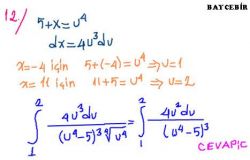 BAYCEBİR
12/
5+x=u⁴
dx=4u³du
x=-4 için 5+(-4)=u⁴ ⇒ u=1
x=11 için 11+5=u⁴ ⇒ u=2
∫₁² 4u³du / (u⁴-5)³ ⁴√u⁴ = ∫₁² 4u²du / (u⁴-5)³
CEVAP:C